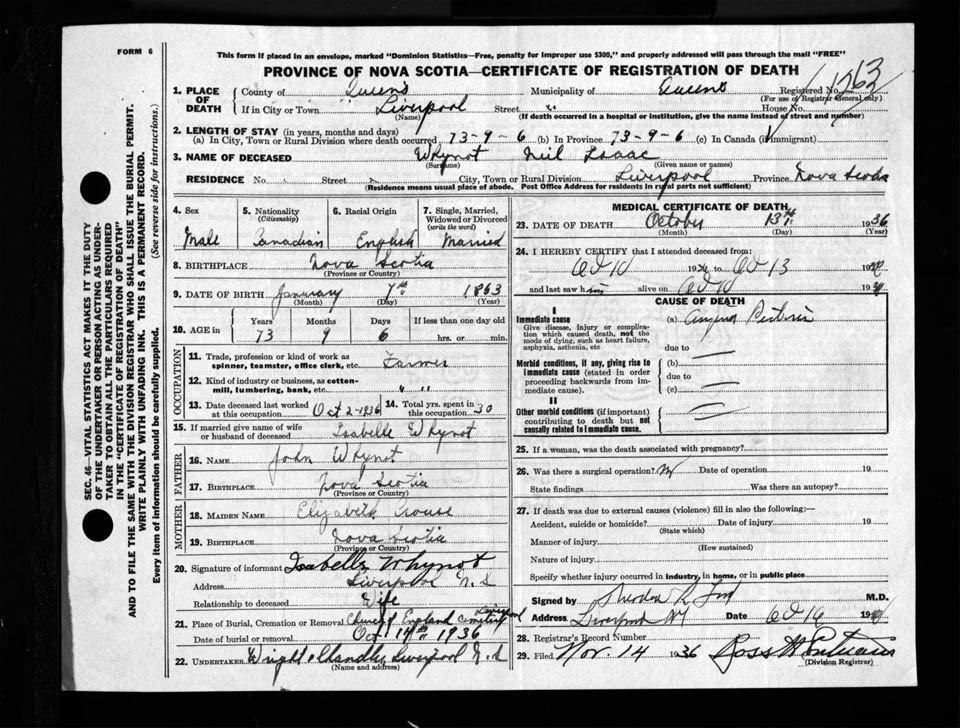 FORM 6
This form if placed in an envelope, marked "Dominion Statistics—Free, penalty for improper use $300," and properly addressed will pass through the mail "FREE"
PROVINCE OF NOVA SCOTIA—CERTIFICATE OF REGISTRATION OF DEATH
SEC. 46—VITAL STATISTICS ACT MAKES IT THE DUTY
OF THE UNDERTAKER OR PERSON ACTING AS UNDER-
TAKER TO OBTAIN ALL THE PARTICULARS REQUIRED
IN THE "CERTIFICATE OF REGISTRATION OF DEATH"
AND TO FILE THE SAME WITH THE DIVISION REGISTRAR WHO SHALL ISSUE THE BURIAL PERMIT.
WRITE PLAINLY WITH UNFADING INK. THIS IS A PERMANENT RECORD.
Every item of information should be carefully supplied. (See reverse side for instructions.)
1. PLACE OF DEATH
County of Queens Municipality of Queens Registered No.
(For use of Registrar General only)
If in City or Town Liverpool Street House No.
(Name) (If death occurred in a hospital or institution, give the name instead of street and number)
2. LENGTH OF STAY (in years, months and days)
(a) In City, Town or Rural Division where death occurred 73-9-6 (b) In Province 73-9-6 (c) In Canada (if immigrant)
3. NAME OF DECEASED Whynot Neil Isaac
(Surname) (Given name or names)
RESIDENCE No. Street City, Town or Rural Division Liverpool Province Nova Scotia
(Residence means usual place of abode. Post Office Address for residents in rural parts not sufficient)
4. Sex Male
5. Nationality (Citizenship) Canadian
6. Racial Origin English
7. Single, Married, Widowed or Divorced (write the word) Married
8. BIRTHPLACE Nova Scotia
(Province or Country)
9. DATE OF BIRTH January 7th 1863
(Month) (Day) (Year)
10. AGE in Years 73 Months 9 Days 6 If less than one day old hrs. or min.
OCCUPATION
11. Trade, profession or kind of work as spinner, teamster, office clerk, etc. Farmer
12. Kind of industry or business, as cotton-mill, lumbering, bank, etc. " "
13. Date deceased last worked at this occupation Oct 2-1936
14. Total yrs. spent in this occupation 30
15. If married give name of wife or husband of deceased Isabelle Whynot
FATHER
16. NAME John Whynot
17. BIRTHPLACE Nova Scotia
(Province or Country)
MOTHER
18. MAIDEN NAME Elizabeth Crouse
19. BIRTHPLACE Nova Scotia
(Province or Country)
20. Signature of informant Isabelle Whynot
Address Liverpool N.S
Relationship to deceased Wife
21. Place of Burial, Cremation or Removal Church of England Cemetery Liverpool
Date of burial or removal Oct 14th 1936
22. UNDERTAKER Wright & Chandler Liverpool N.S
(Name and address)
MEDICAL CERTIFICATE OF DEATH
23. DATE OF DEATH October 13th 1936
(Month) (Day) (Year)
24. I HEREBY CERTIFY that I attended deceased from:
Oct 10 1936 to Oct 13 19
and last saw him alive on Oct 19
CAUSE OF DEATH
I
Immediate cause
Give disease, injury or complication which caused death, not the mode of dying, such as heart failure, asphyxia, asthenia, etc
(a) Angina Pectoris
due to
Morbid conditions, if any, giving rise to immediate cause (stated in order proceeding backwards from immediate cause).
(b)
due to
(c)
II
Other morbid conditions (if important) contributing to death but not causally related to immediate cause.
25. If a woman, was the death associated with pregnancy?
26. Was there a surgical operation? No Date of operation 19
State findings Was there an autopsy?
27. If death was due to external causes (violence) fill in also the following:—
Accident, suicide or homicide? Date of injury 19
(State which)
Manner of injury
(How sustained)
Nature of injury
Specify whether injury occurred in industry, in home, or in public place
Signed by M.D.
Address Liverpool NS Date Oct 16 19
28. Registrar's Record Number
29. Filed Nov. 14 1936
(Division Registrar)